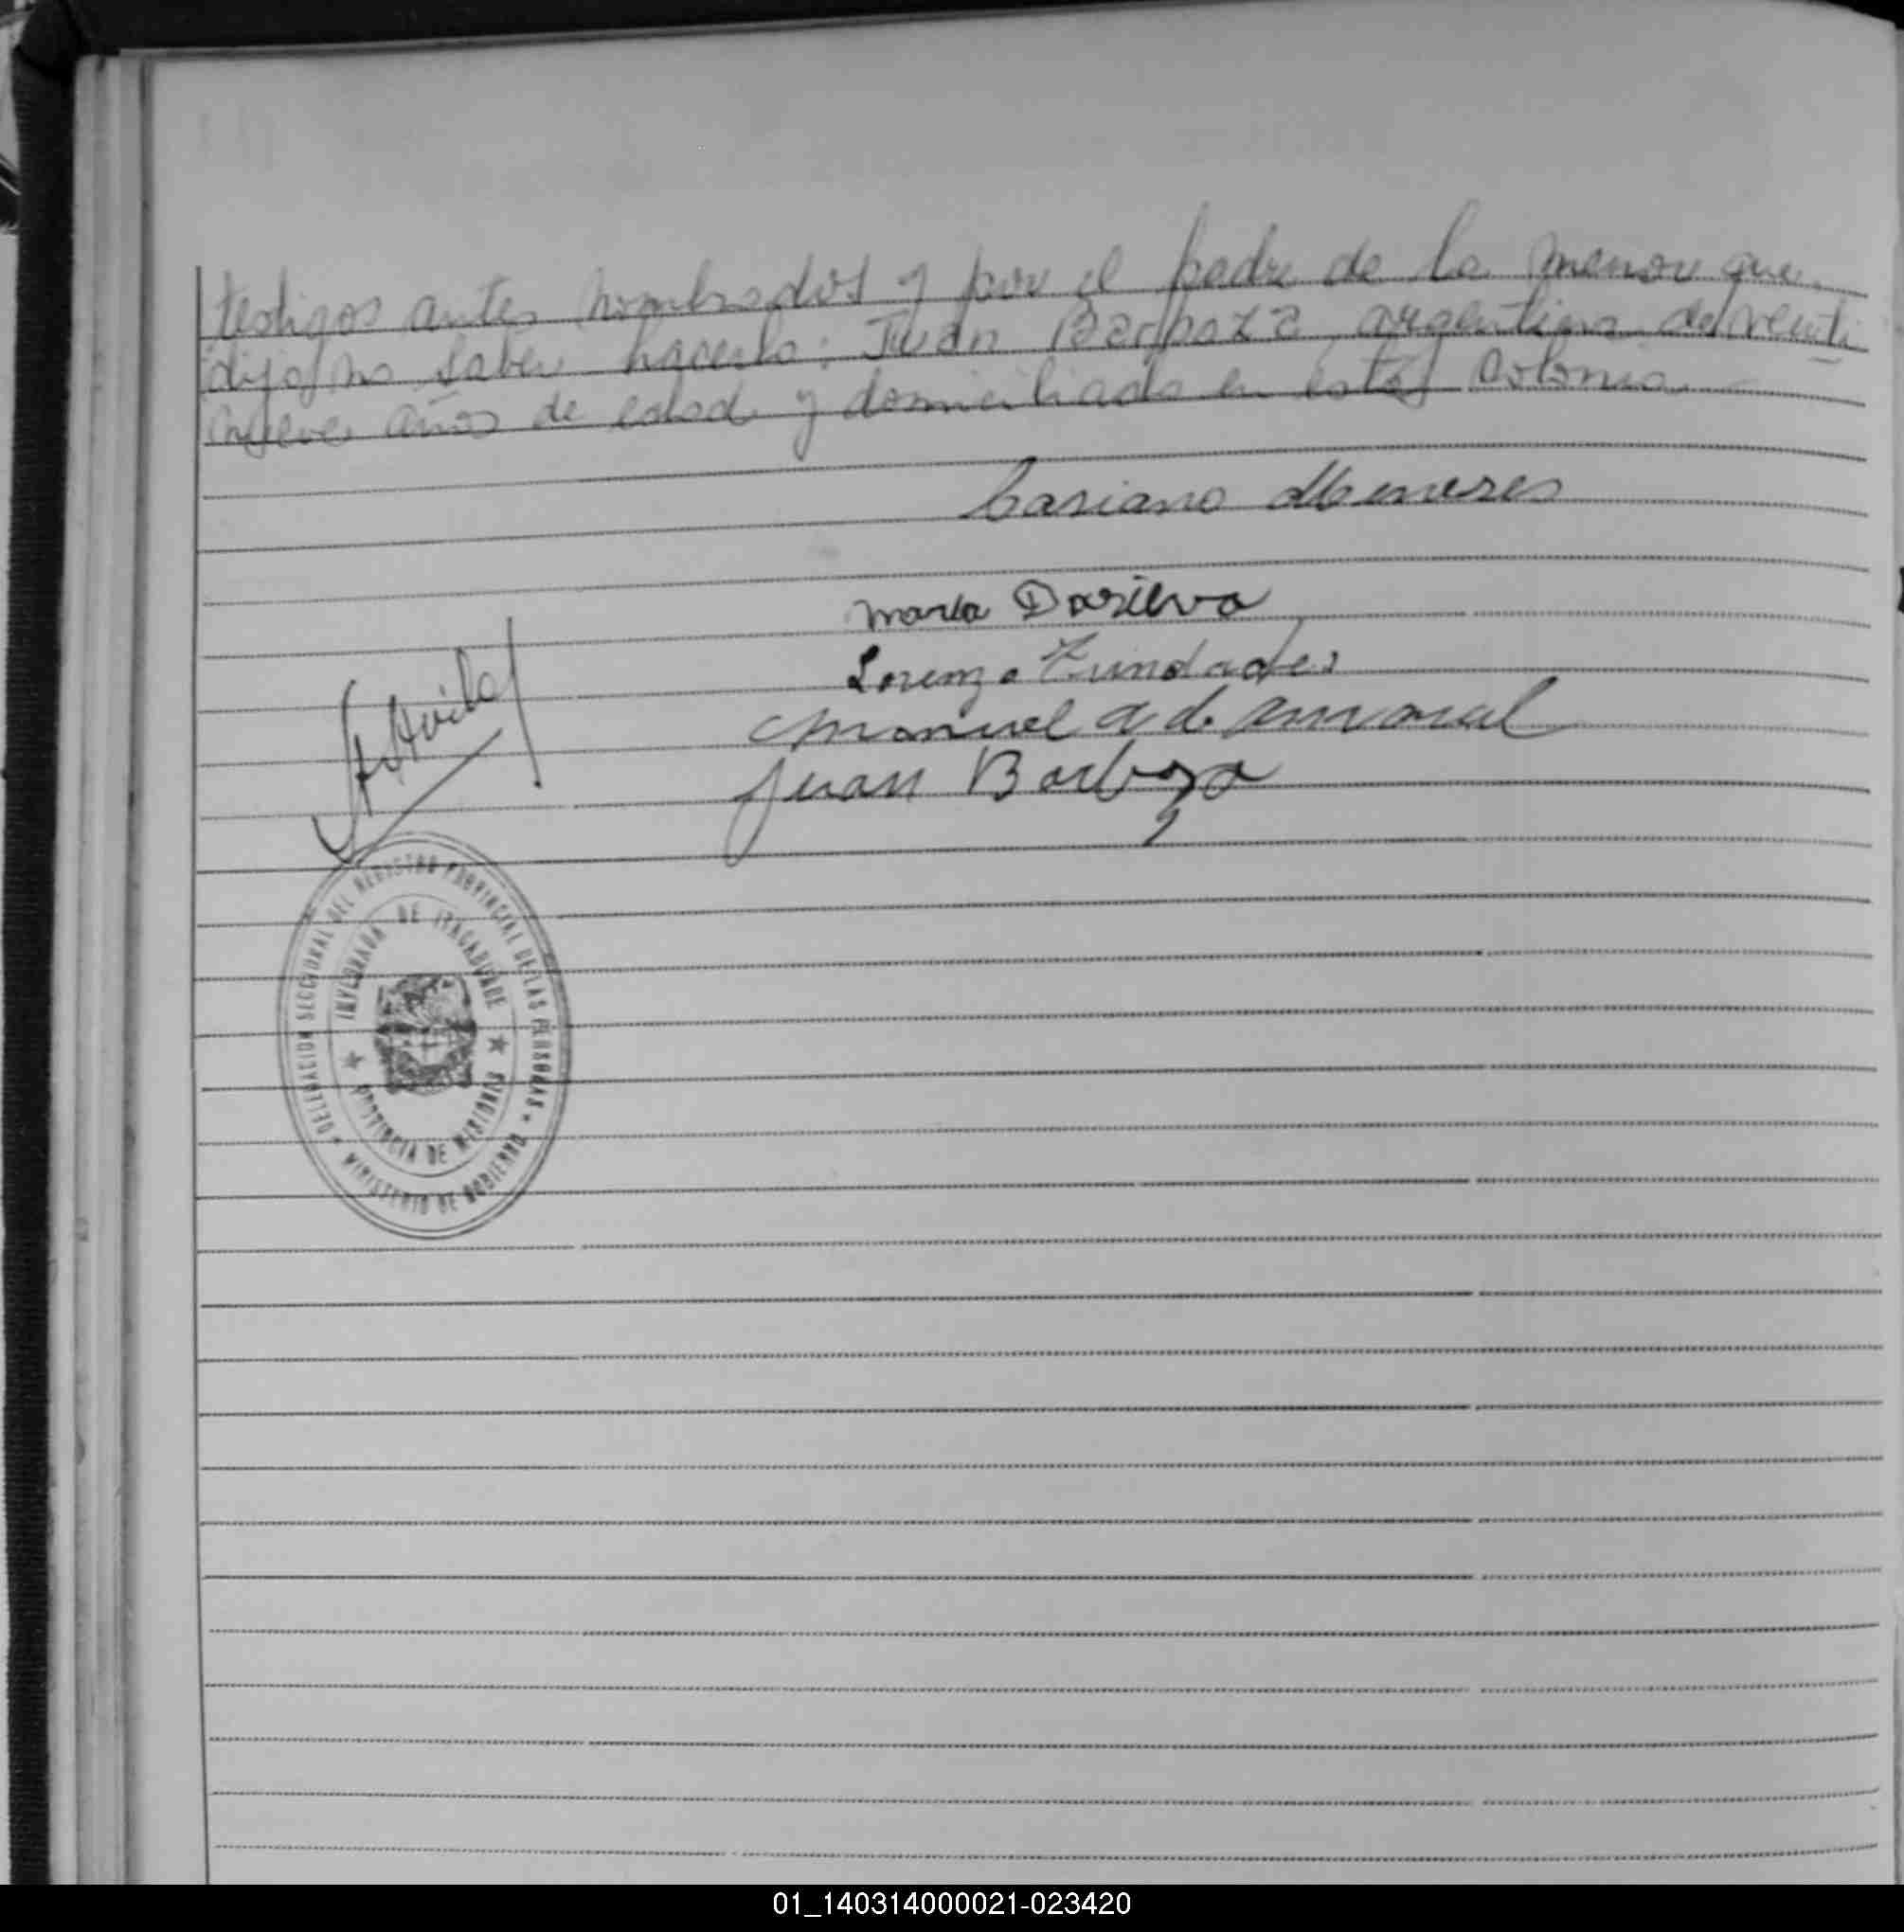 testigos antes nombrados y por el padre de la menor que
dijo no saber hacerlo: Juan Barboza, argentino de veinti
nueve años de edad y domiciliado en esta Colonia. -
Casiano Meneses
Maria Dasilva
Lorenzo Trindades
Manuel a de amaral
Juan Barboza
DELEGACION SECCIONAL DEL REGISTRO PROVINCIAL DE LAS PERSONAS
DE ITACARUARE
PROVINCIA DE MISIONES
MINISTERIO DE GOBIERNO
01_140314000021-023420